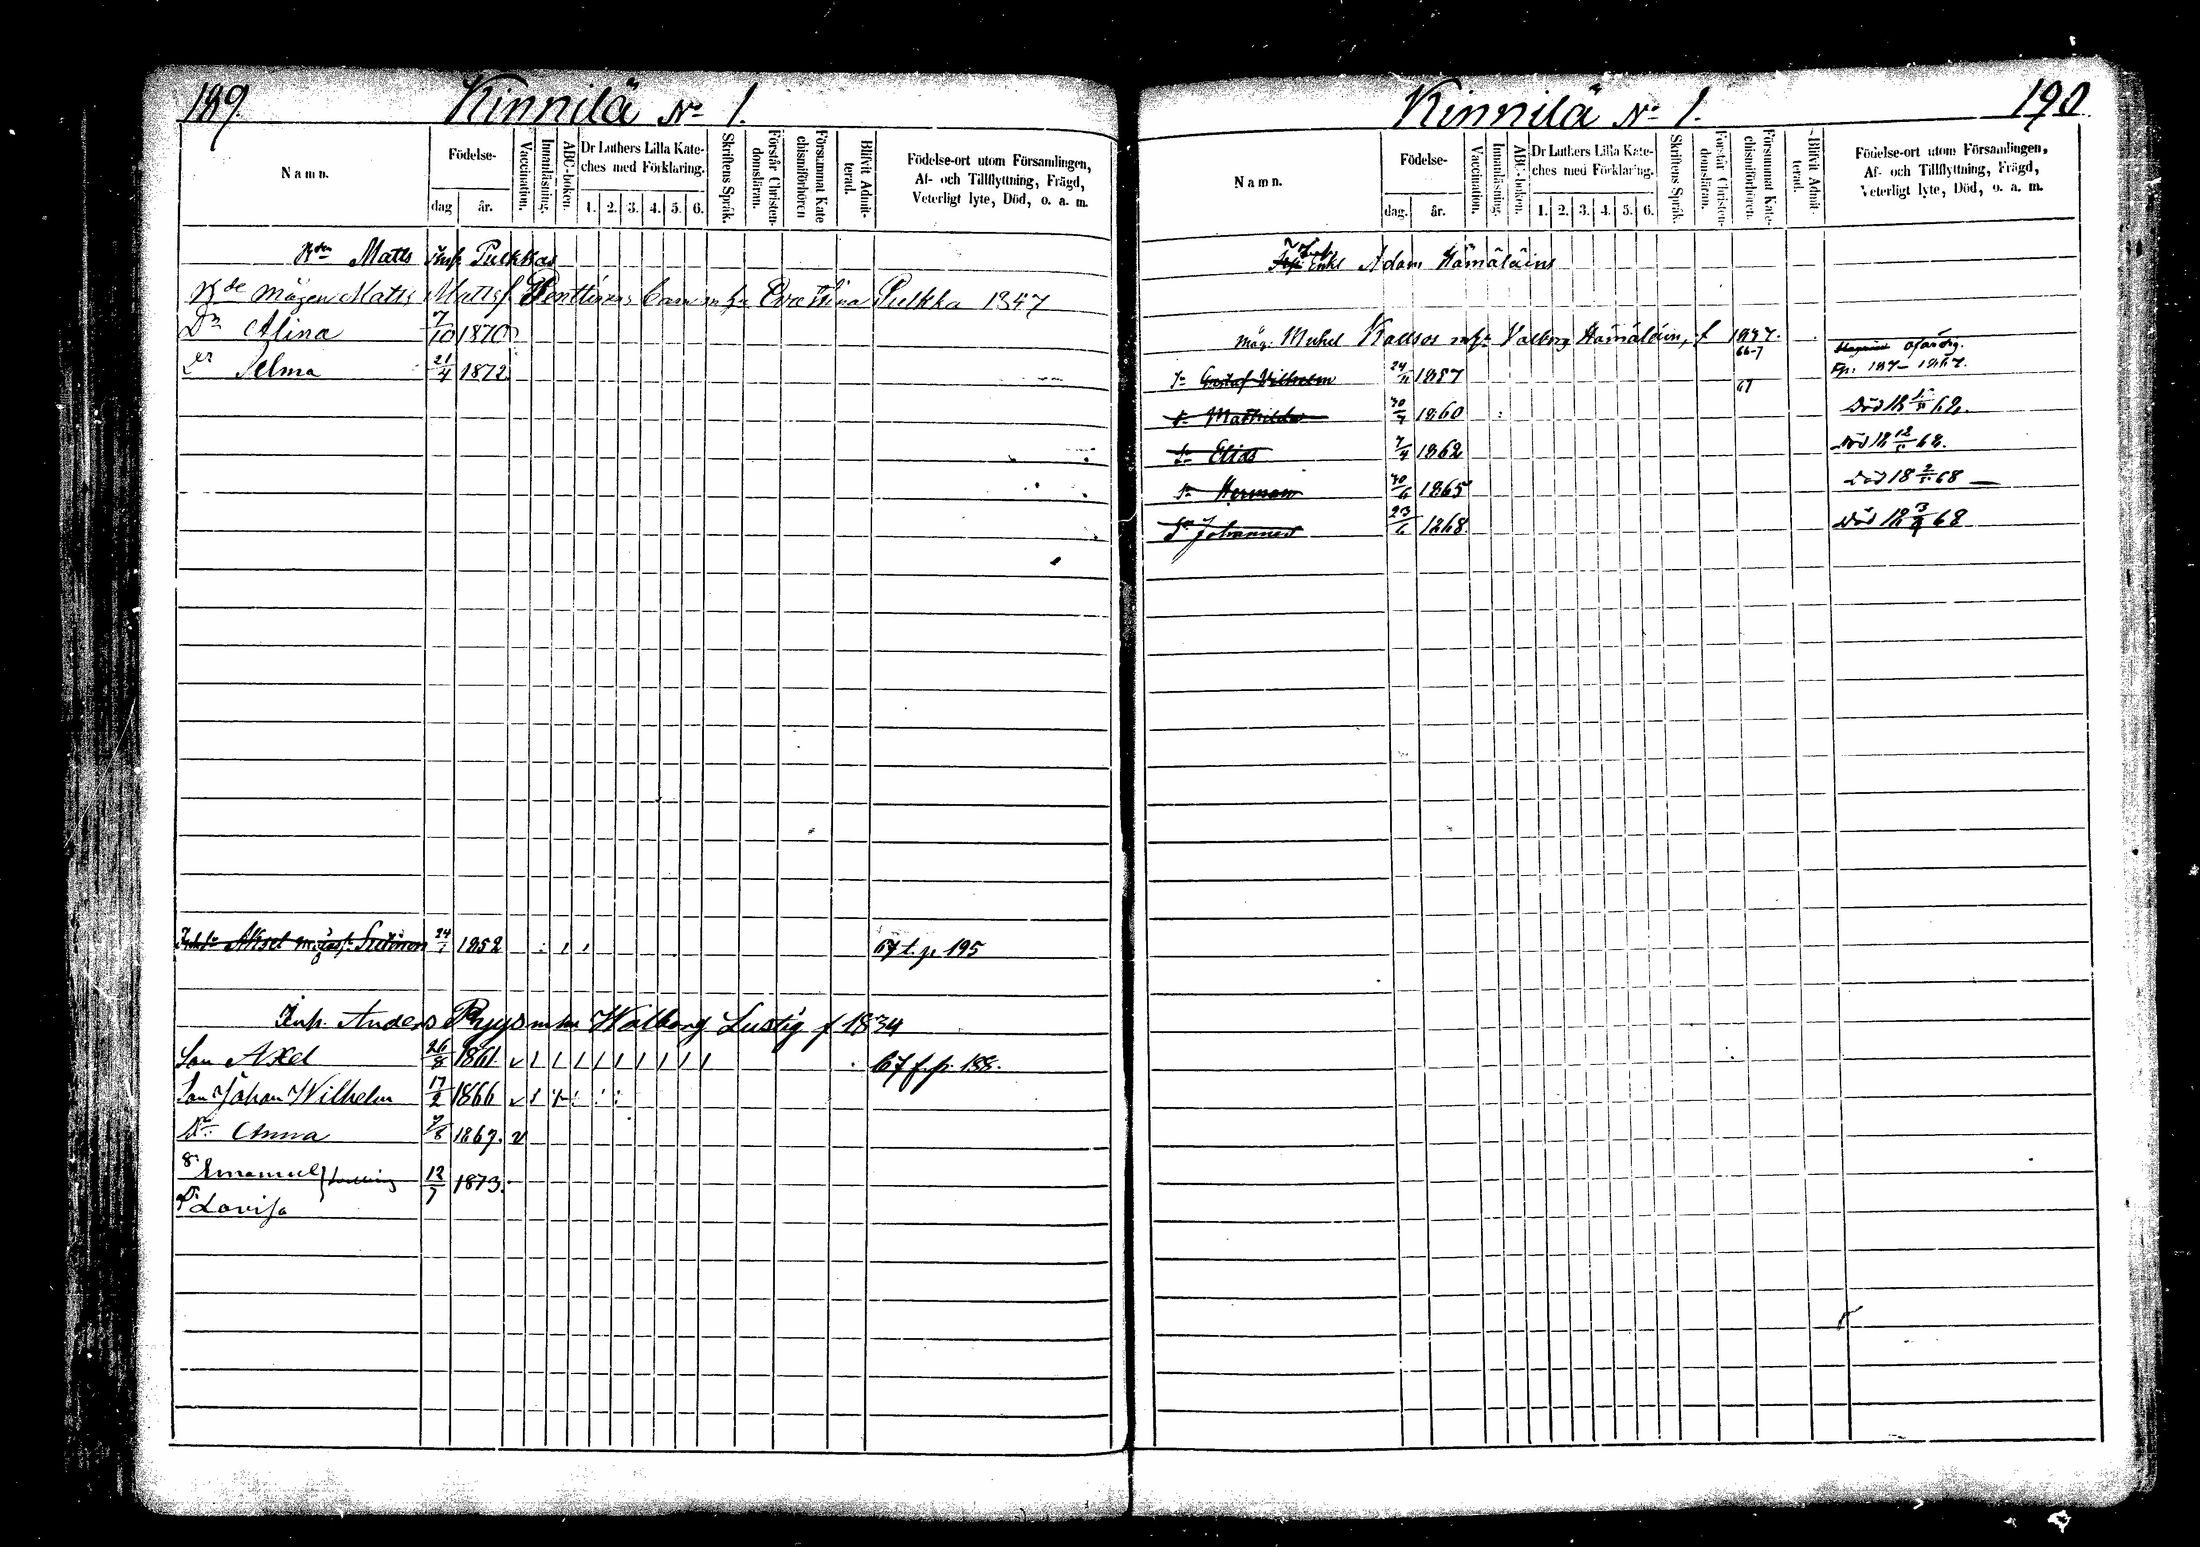 189. Kinnilä No 1.
Namn.
Födelse-
dag
år.
Vaccination.
Innanläsning.
ABC-boken.
Dr Luthers Lilla Kate-
ches med Förklaring.
1. 2. 3. 4. 5. 6.
Skriftens Språk.
Förstår Christen-
domsläran.
Försummat Kate
chismiförhören
Blifvit Admit-
terad.
Födelse-ort utom Församlingen,
Af- och Tillflyttning, Frägd,
Veterligt lyte, Död, o. a. m.
Matts Inh. Pulkkas
mågen Matts Mattsf Penttinens barn m h Eva Stina Pulkka 1847
Dr Alina 7/10 1870
Dr Selma 21/4 1872
Aksel 24/1 1852 67 t. p. 195
Inh. Anders Ryys m h Walborg Lustig f 1834
Son Axel 26/8 1861. 67 f. p. 188.
Son Johan Wilhelm 17/2 1866
Dr Anna 7/8 1867.
Sn Emanuel 12/7 1873.
Dr Lovisa
Kinnilä No 1. 190
Namn.
Födelse-
dag.
år.
Vaccination.
Innanläsning.
ABC-boken.
Dr Luthers Lilla Kate-
ches med Förklaring.
1. 2. 3. 4. 5. 6.
Skriftens Språk.
Förstår Christen-
domsläran.
Försummat Kate-
chismiförhören.
Blifvit Admit-
terad.
Födelse-ort utom Församlingen,
Af- och Tillflyttning, Frägd,
Veterligt lyte, Död, o. a. m.
Enkl Adam Hämäläins
måg. Mickel Kallsos m h Valborg Hämäläin, f 1837.
66-7
Sn Gustaf Wilhelm 24/11 1857 67
Mathilda 30/7 1860 Död 18 68.
Sn Elias 7/4 1862 Död 18 68.
Sn Herman 30/6 1865 Död 18 68
Sn Johannes 23/6 1868 Död 18 68